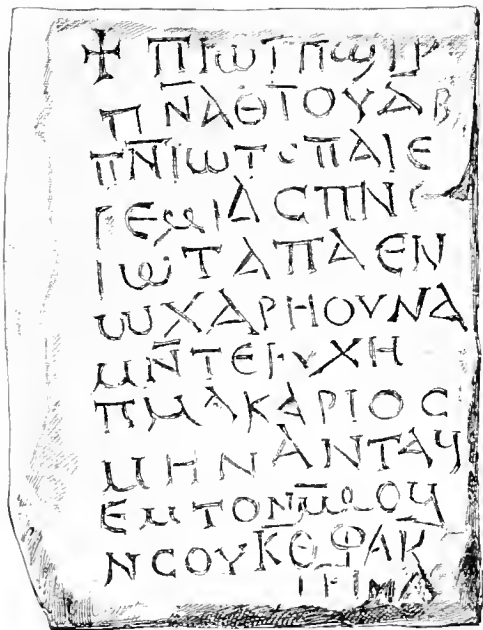 ✝ ⲠⲒⲰⲦ ⲠϢⲎⲢ
ⲠⲚ̅ⲀⲐⲦⲞⲨⲀⲂ
ⲠⲚ̅ⲒⲰⲦ ⲠⲀⲒⲈ
ⲢⲈⲘⲒⲀⲤ ⲠⲚ
ⲒⲰⲦ ⲀⲠⲀ ⲈⲚ
ⲰⲬ ⲀⲢⲎⲞⲨⲚⲀ
ⲘⲚ̅ ⲦⲈⲮⲨⲬⲎ
ⲠⲘⲀⲔⲀⲢⲒⲞⲤ
ⲘⲎⲚⲀ ⲚⲦⲀϤ
ⲈⲘⲦⲟⲛ Ⲙ̅ⲘⲞϤ
ⲚⲤⲞⲨ Ⲕ̅Ⲑ̅ ⲪⲀⲢ
ⲒⲢⲒⲘⲀ